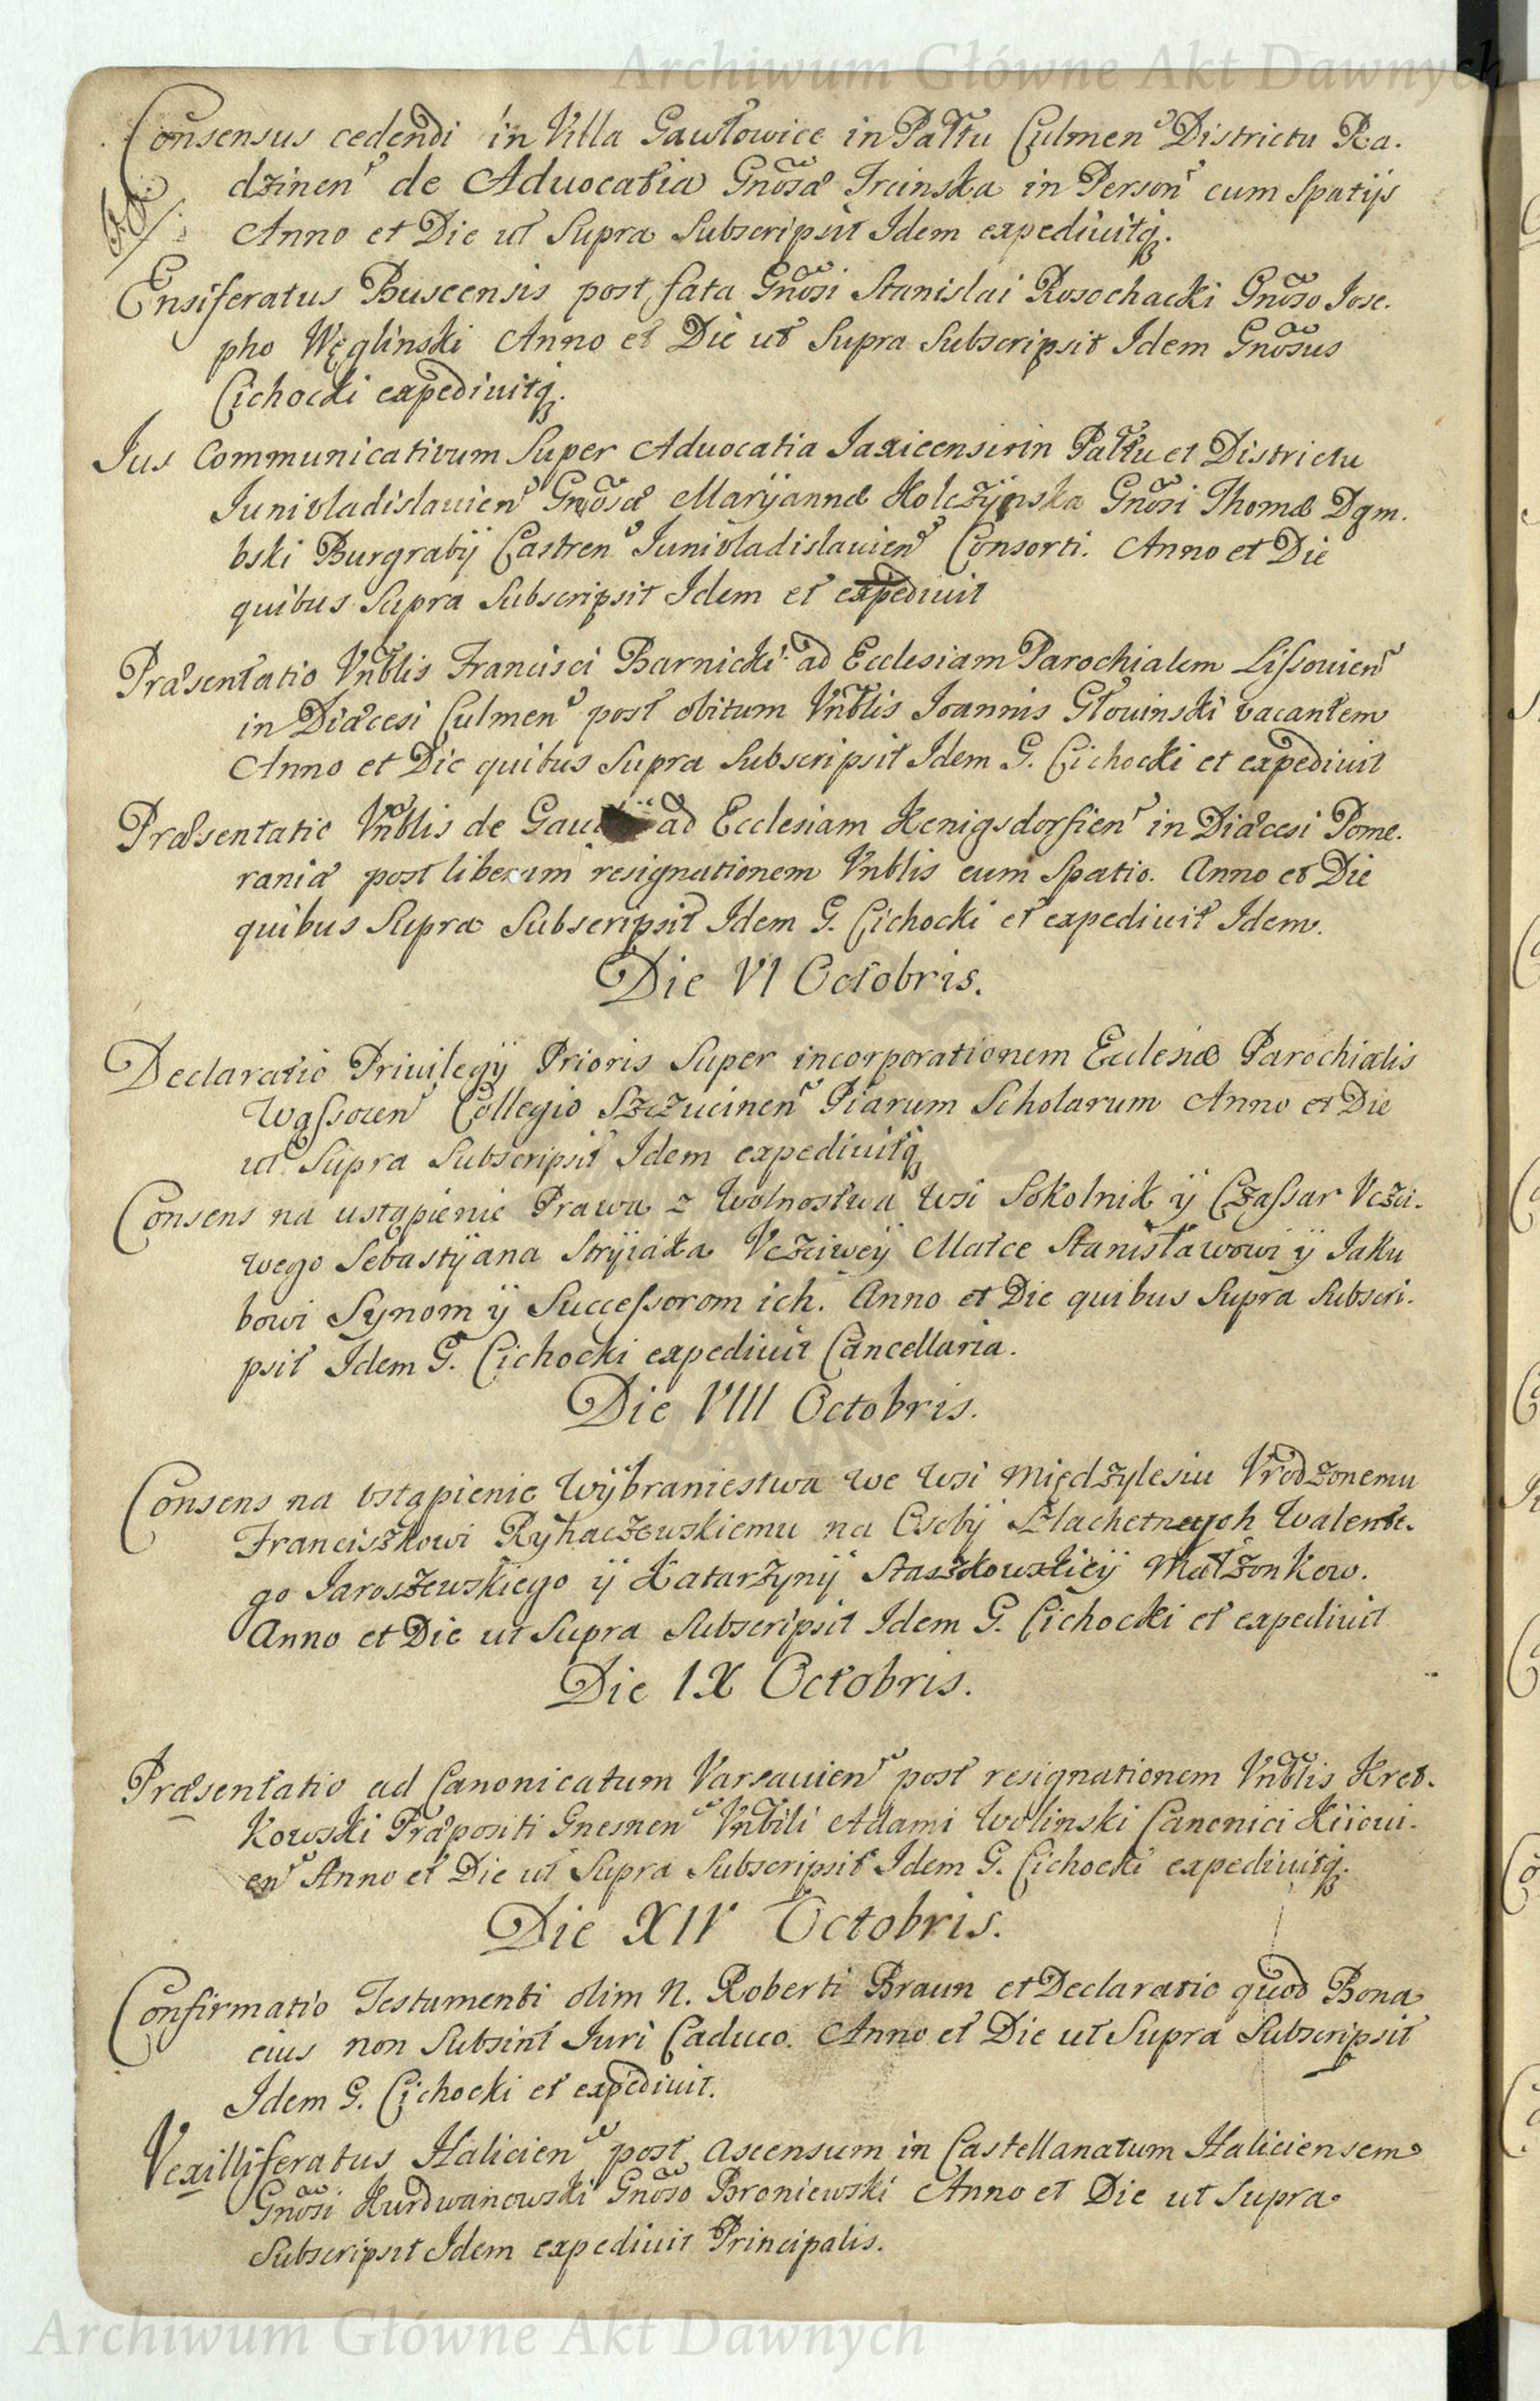 Archiwum Główne Akt Dawnych
Consensus cedendi in Villa Gawłowice in Pałtu Culmen Districtu Ra.
dzinen de Aduocatia Gnosæ Trcinska in Person cum Spatijs
Anno et Die ut Supra Subscripsit Idem expediuitq.
Ensiferatus Buscensis post fata Gnosi Stanislai Rosochacki Gnoso Jose.
pho Węglinski Anno et Die ut Supra Subscripsit Idem Gnosus
Cichocki expediuitq.
Ius Communicativum Super Aduocatia Jaxicensi in Pałtu et Districtu
Junivladislauien Gnosæ Maryannæ Kolczynska Gnosi Thomæ Dąm.
bski Burgrabij Castren Junivladislauien Consorti. Anno et Die
quibus Supra Subscripsit Idem et expediuit
Præsentatio Vnblis Francisci Barnicki ad Ecclesiam Parochialem Lissouien
in Diæcesi Culmen post obitum Vnblis Joannis Głouinski vacantem
Anno et Die quibus Supra Subscripsit Idem G. Cichocki et expediuit
Præsentatio Vnblis de ad Ecclesiam Kenigsdorfien in Diæcesi Pome.
raniæ post liberam resignationem Vnblis cum Spatio. Anno et Die
quibus Supra Subscripsit Idem G. Cichocki et expediuit Idem.
Die VI Octobris.
Declaratio Priuilegij Prioris Super incorporationem Ecclesiæ Parochialis
Wąssocen Collegio Szczucinen Piarum Scholarum Anno et Die
ut Supra Subscripsit Idem expediuitq
Consens na ustąpienie Prawa z Wolnostwa Wsi Sokolnik ÿ Czassar Vczci.
wego Sebastÿana Strÿiaka Vczciweÿ Matce Stanisławowi ÿ Jaku
bowi Synom ÿ Successorom ich. Anno et Die quibus Supra Subscri.
psit Idem G. Cichocki expediuit Cancellaria.
Die VIII Octobris.
Consens na vstąpienie Wÿbraniestwa we Wsi Międzylesiu Vrodzonemu
Franciszkowi Rÿhaczewskiemu na Osobÿ Szlachetnych Walente.
go Jaroszewskiego ÿ Katarzynÿ Staszkowskieÿ Małżonkow.
Anno et Die ut Supra Subscripsit Idem G. Cichocki et expediuit
Die IX Octobris.
Præsentatio ad Canonicatum Varsauien post resignationem Vnblis Kret.
kowski Præpositi Gnesnen Vnbili Adami Wolinski Canonici Kiioui.
en Anno et Die ut Supra Subscripsit Idem G. Cichocki expediuitq.
Die XIV Octobris.
Confirmatio Testamenti olim N. Roberti Braun et Declaratio quod Bona
eius non Subsint Juri Caduco. Anno et Die ut Supra Subscripsit
Idem G. Cichocki et expediuit.
Vexilliferatus Halicien post ascensum in Castellanatum Haliciensem
Gnosi Kurdwanowski Gnoso Broniewski Anno et Die ut Supra
Subscripsit Idem expediuit Principalis.
Archiwum Główne Akt Dawnych